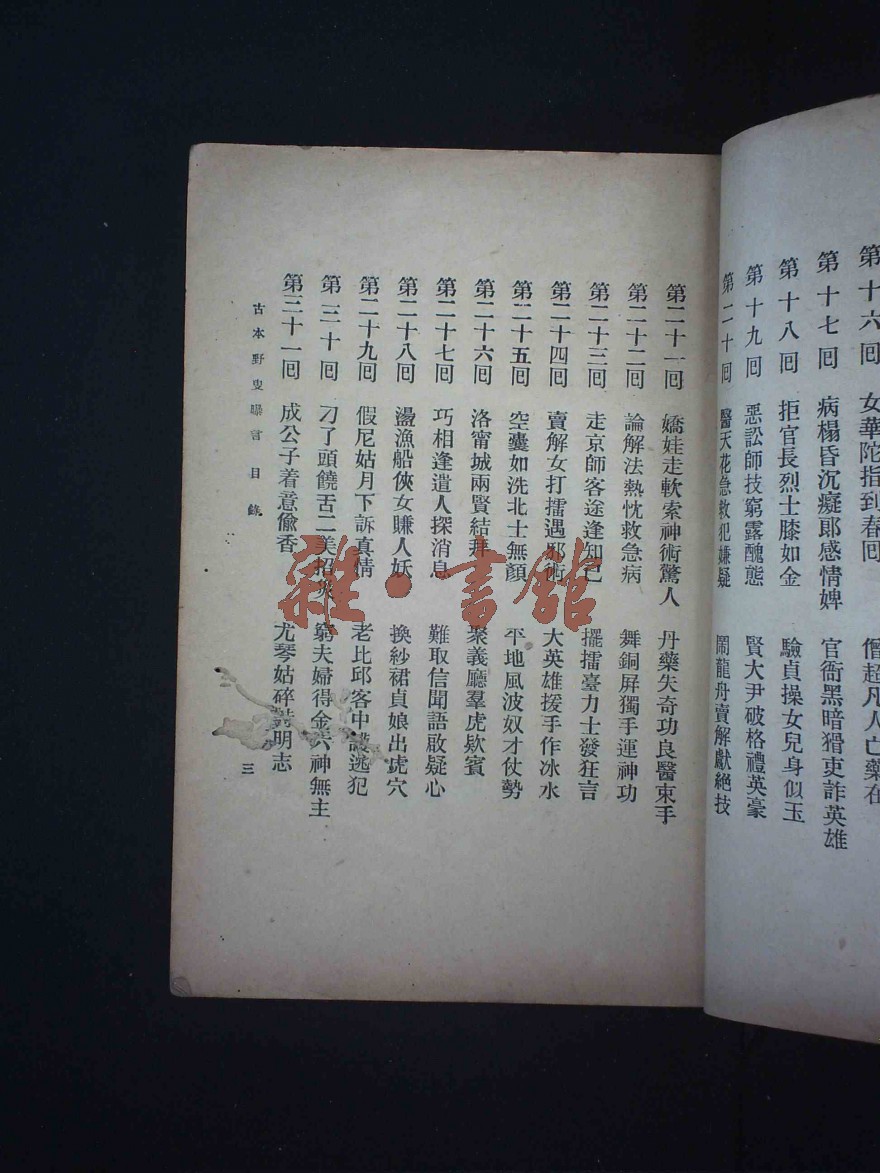 第十六回 女華陀指到春回 僧超凡人亡藥在
第十七回 病榻昏沉癡郎感情婢 官衙黑暗猾吏詐英雄
第十八回 拒官長烈士膝如金 驗貞操女兒身似玉
第十九回 惡訟師技窮露醜態 賢大尹破格禮英豪
第二十回 醫天花急救犯嫌疑 鬧龍舟賣解獻絕技
第二十一回 嬌娃走軟索神術驚人 丹藥失奇功良醫束手
第二十二回 論解法熱忱救急病 舞銅屏獨手運神功
第二十三回 走京師客途逢知己 擺擂臺力士發狂言
第二十四回 賣解女打擂遇邪術 大英雄援手作冰水
第二十五回 空囊如洗北士無顏 平地風波奴才仗勢
第二十六回 洛甯城兩賢結拜 聚義廳羣虎欵賓
第二十七回 巧相逢遣人探消息 難取信聞語啟疑心
第二十八回 盪漁船俠女賺人妖 換紗裙貞娘出虎穴
第二十九回 假尼姑月下訴真情 老比邱客中護逃犯
第三十回 刁了頭饒舌二美招 窮夫婦得金六神無主
第三十一回 成公子着意偷香 尤琴姑碎 明志
古本野叟曝言 目錄
三
雜·書館